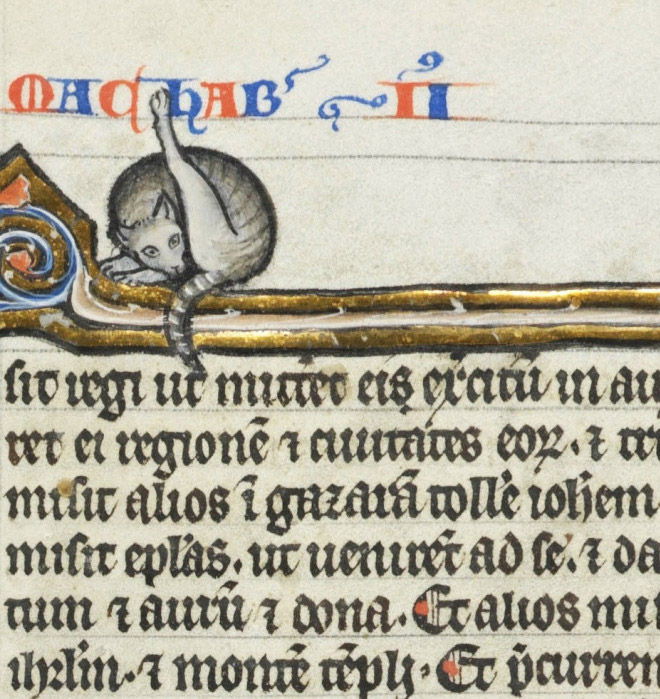 MACHAB' II
sit regi ut mitteret eis exercitū in au
ret ei regionē ⁊ ciuitates eoꝝ. ⁊ tri
misit alios ī gazarā tolle iohem
misit eplas. ut uenirēt ad se. ⁊ da
tum ⁊ aurū ⁊ dona. Et alios mi
ihrlm. ⁊ montē tēpli. Et p̄curren